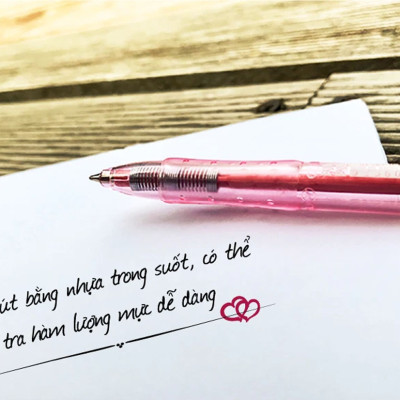 út bằng nhựa trong suốt, có thể
tra hàm lượng mực dễ dàng